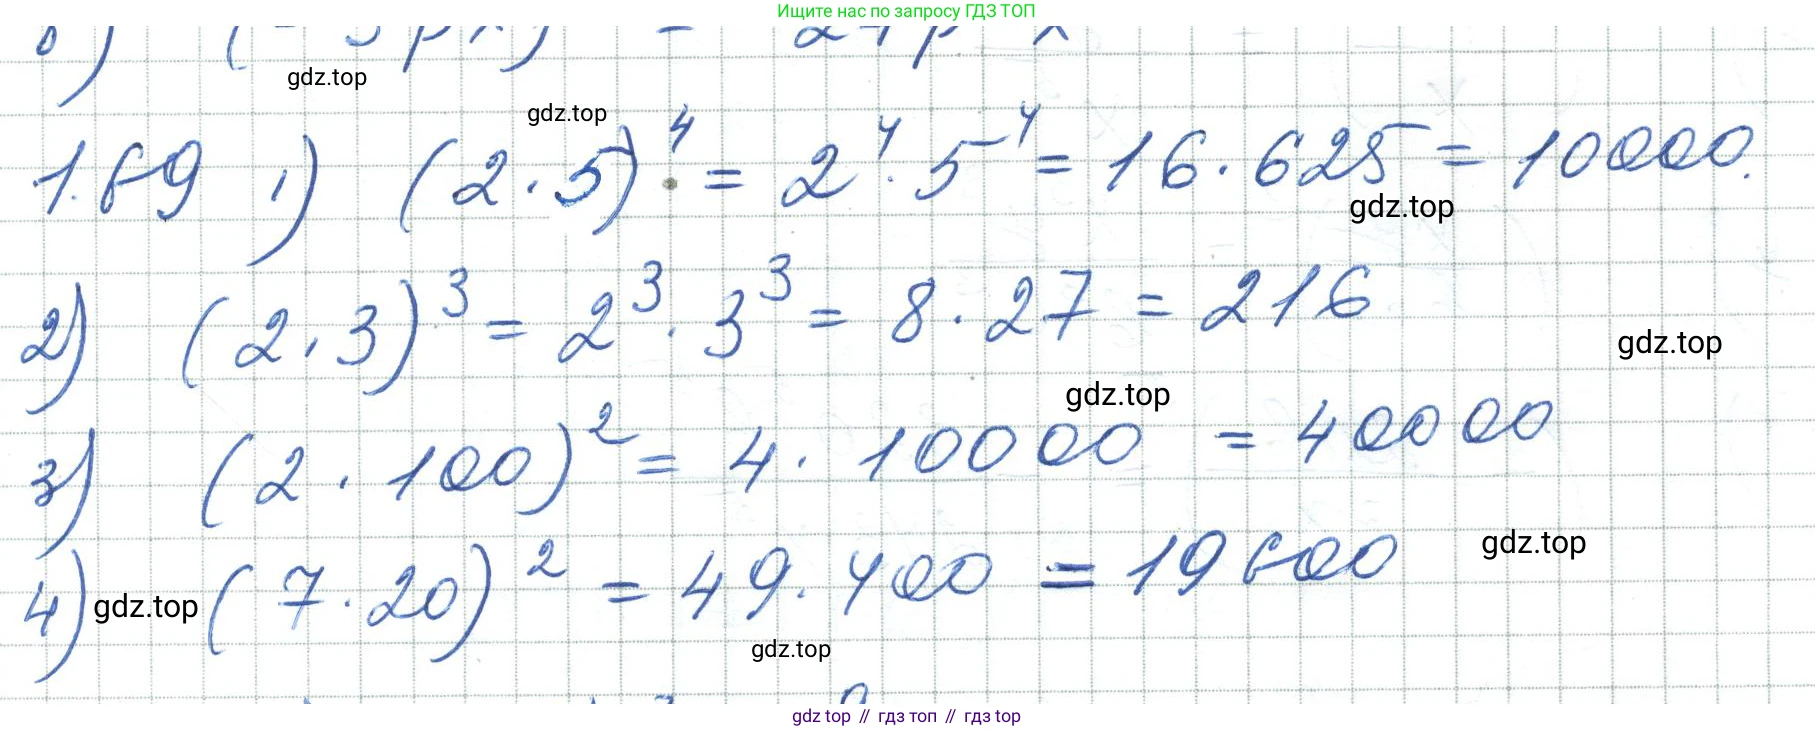 Ищите нас по запросу ГДЗ ТОП
gdz.top
gdz.top
1.69 1) (2·5)⁴ = 2⁴·5⁴ = 16·625 = 10000.
gdz.top
2) (2·3)³ = 2³·3³ = 8·27 = 216
gdz.top
gdz.top
3) (2·100)² = 4·10000 = 40000
gdz.top
4) gdz.top (7·20)² = 49·400 = 19600
gdz.top
gdz top // гдз топ // гдз top